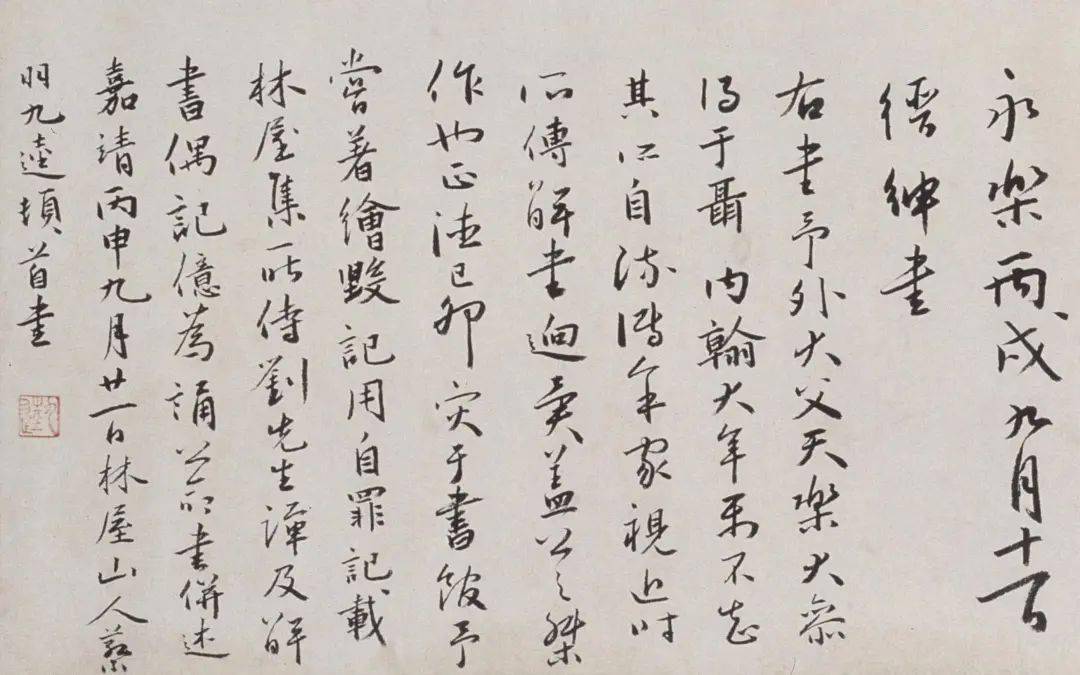 永樂丙戌九月十一日
縉紳書
右書予外大父天樂大參
得于聶內翰大年第不知
其所自流傳余家視近時
所傳解書迥異蓋公之傑
作也正德己卯灾于書館予
嘗著繪毀記用自罪記載
林屋集一昨侍劉先生譚及解
書偶記憶為誦公前書併述
嘉靖丙申九月廿一日林屋山人蔡
羽九逵頓首書